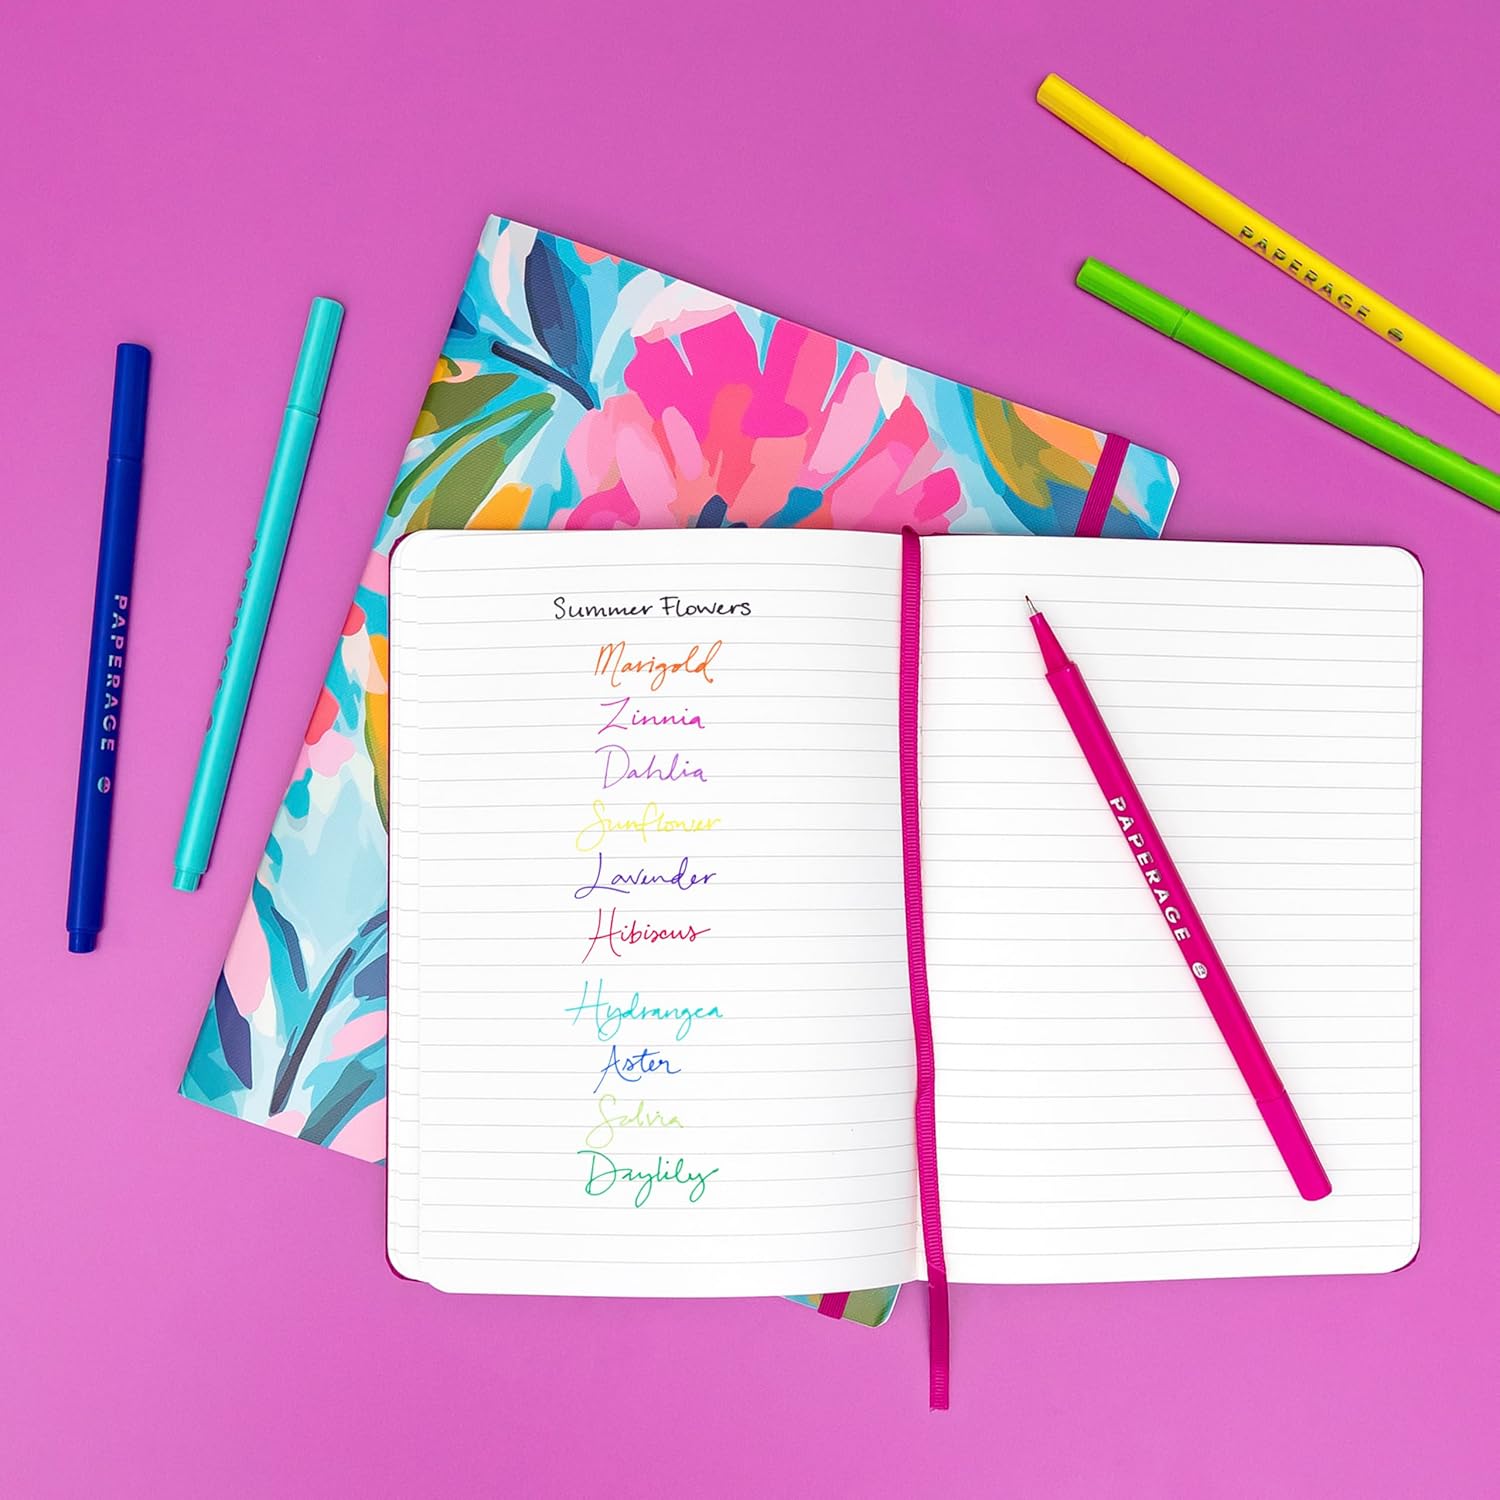 PAPERAGE
PAPERAGE
PAPERAGE
PAPERAGE
Summer Flowers
Marigold
Zinnia
Dahlia
Sunflower
Lavender
Hibiscus
Hydrangea
Aster
Salvia
Daylily
PAPERAGE